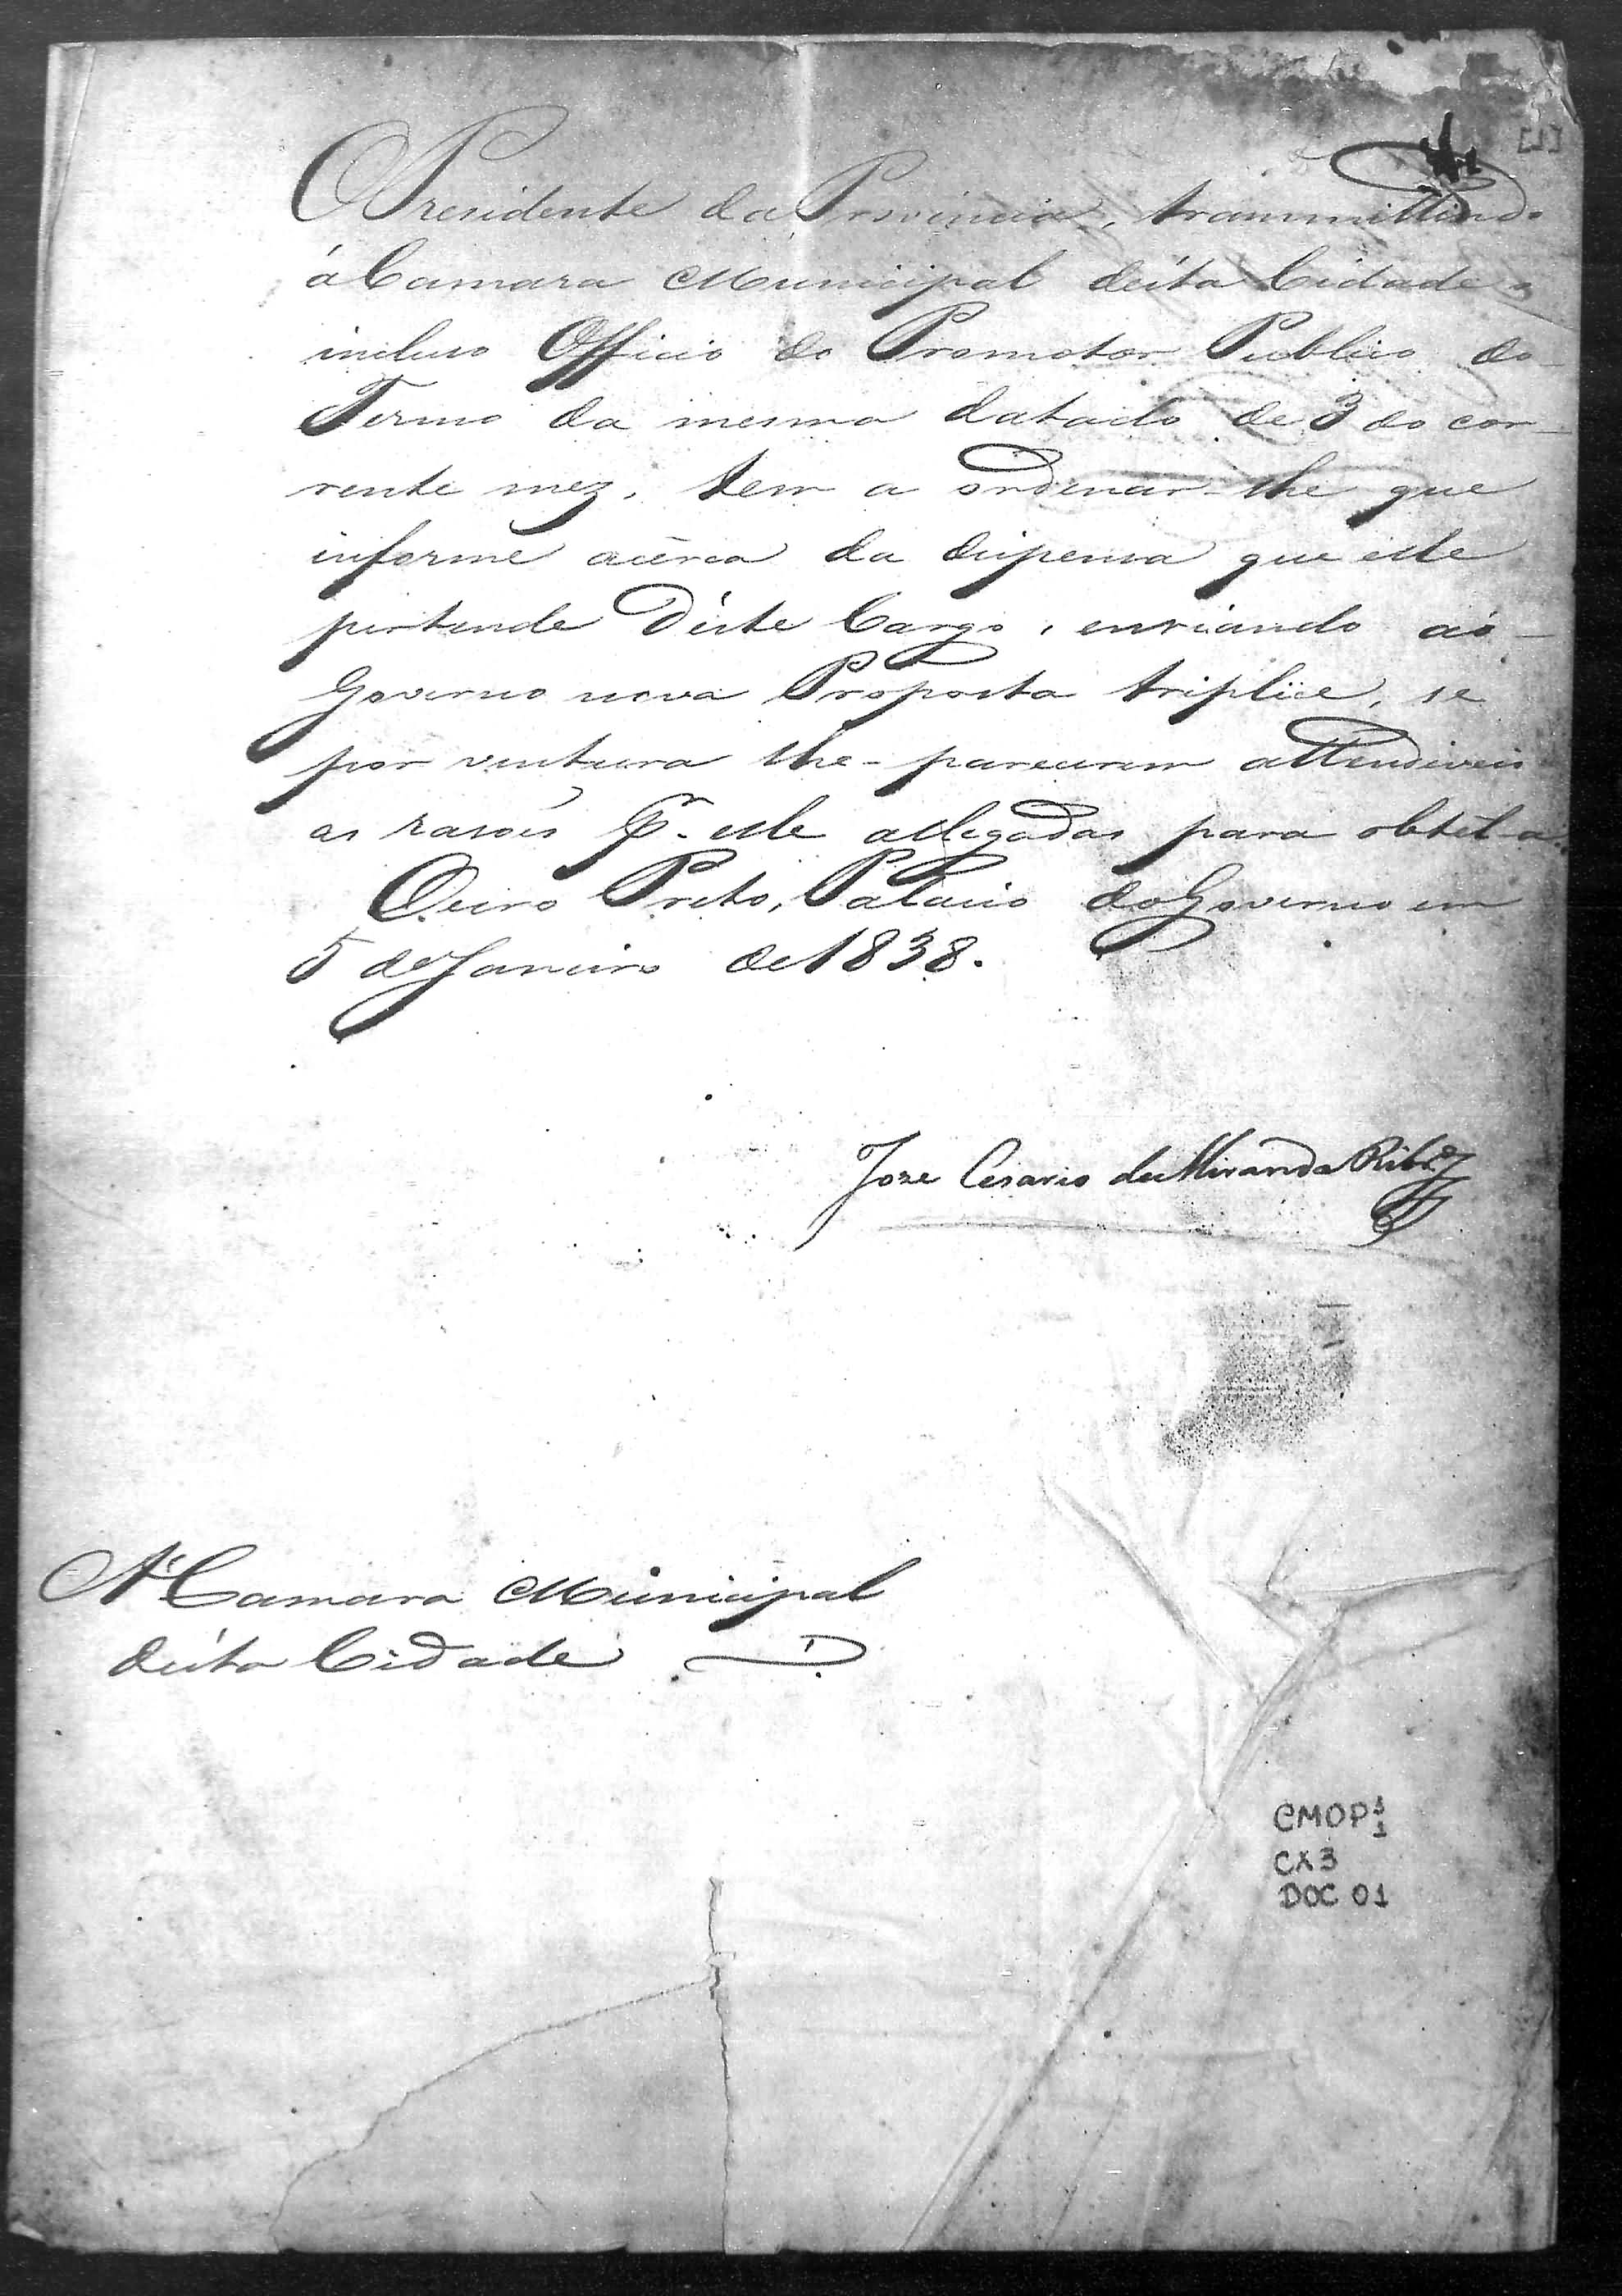 [1]
O Presidente da Provincia, transmittindo
á Camara Municipal désta Cidade o
incluso Officio do Promotor Publico do
Termo da mesma datado de 3 do cor-
rente mez, tem a ordenar-lhe que
informe acêrca da dispensa que elle
pertende déste Cargo, enviando ao
Governo nova Proposta triplice, se
por ventura lhe-parecerem attendiveis
as rasões pr. elle allegadas para obtêl-a.
Ouro Preto, Palacio do Governo em
5 de Janeiro de 1838.
Joze Cesario de Miranda Ribro
A' Camara Municipal
désta Cidade
CMOP 1/1
CX3
DOC 01